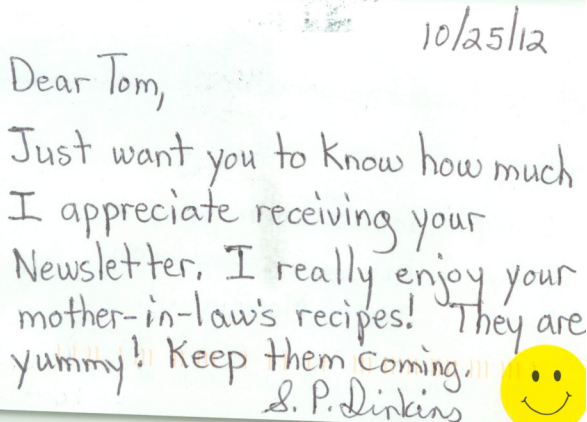 10/25/12
Dear Tom,
Just want you to know how much
I appreciate receiving your
Newsletter. I really enjoy your
mother-in-law's recipes! They are
yummy! Keep them coming.
S. P. Dinkins